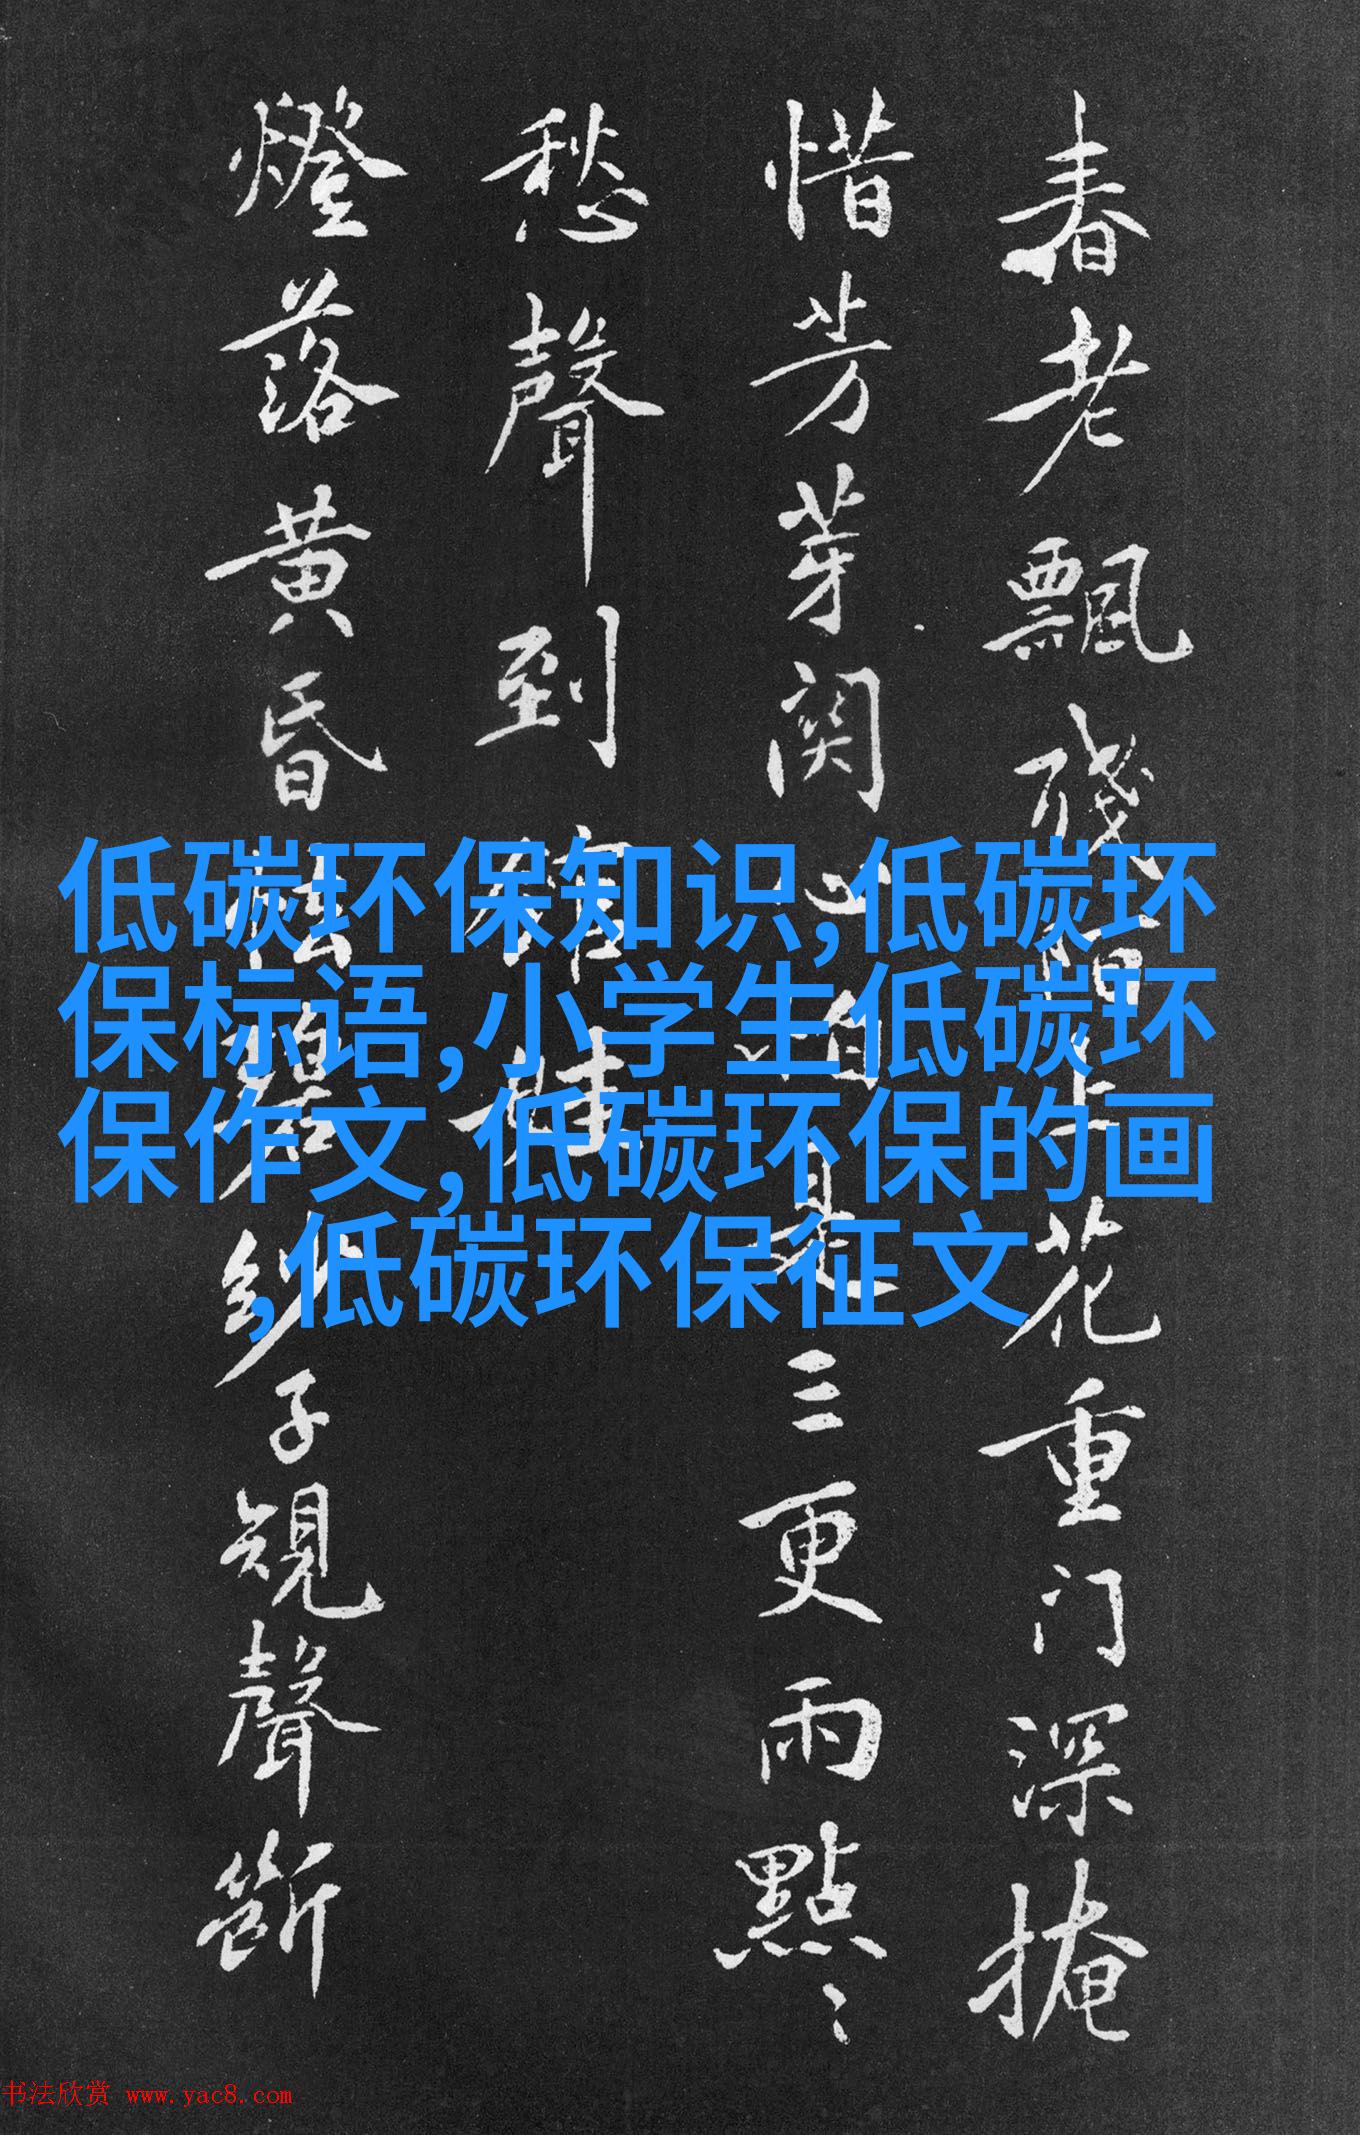 春老飄残上花重门深掩
惜芳芽関心怕是三更雨點〻
愁聲到館娃
燈落黄昏怯碧紗子規聲断
低碳环保知识,低碳环
保标语,小学生低碳环
保作文,低碳环保的画
,低碳环保征文
书法欣赏 www.yac8.com